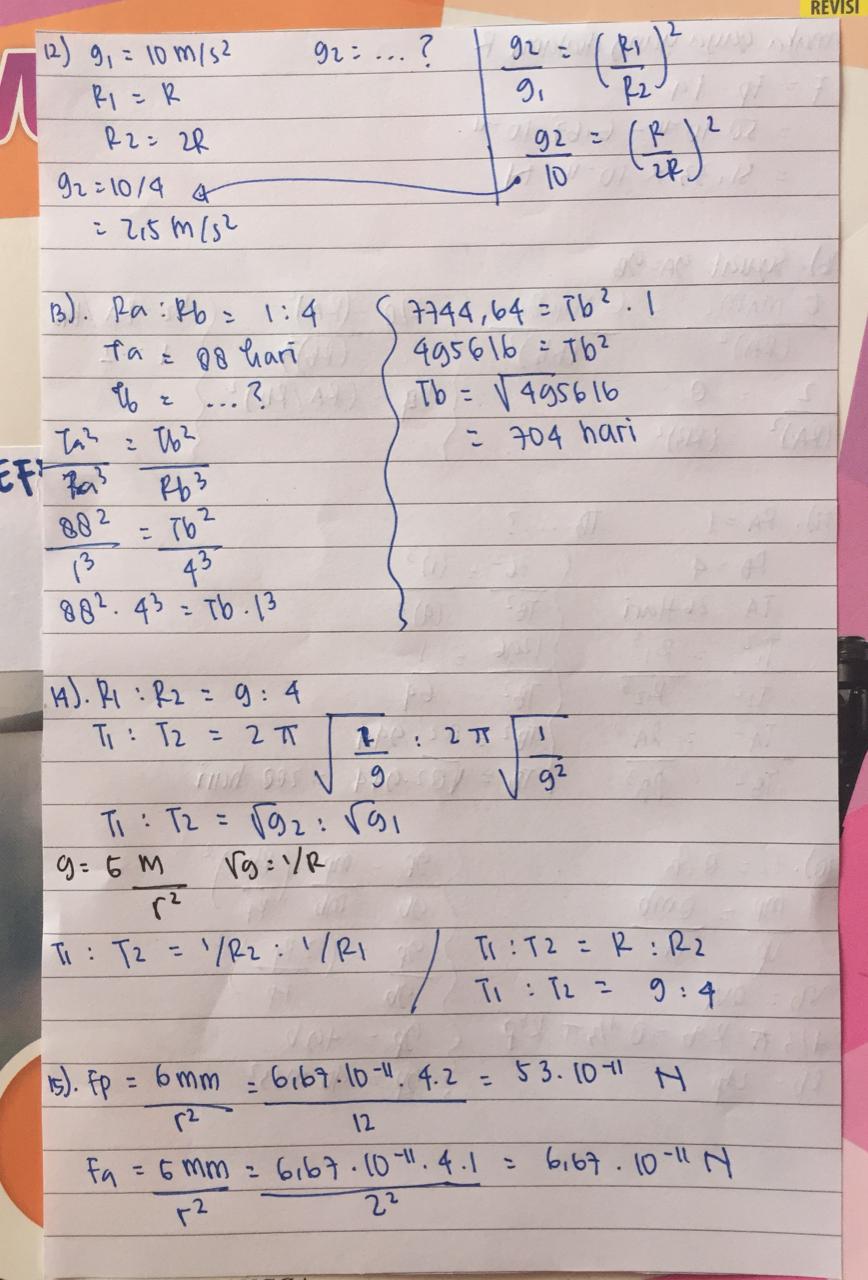 REVISI
12) g₁ = 10 m/s² g₂ = ... ?
R₁ = R
R₂ = 2R
g₂ = 10/4
= 2,5 m/s²
g₂/g₁ = (R₁/R₂)²
g₂/10 = (R/2R)²
13). Ra : Rb = 1 : 4
Ta = 88 hari
Tb = ... ?
Ta²/Ra³ = Tb²/Rb³
88²/1³ = Tb²/4³
88² . 4³ = Tb . 1³
7744,64 = Tb² . 1
495616 = Tb²
Tb = √495616
= 704 hari
14). R₁ : R₂ = 9 : 4
T₁ : T₂ = 2 π √(1/g) : 2 π √(1/g²)
T₁ : T₂ = √g₂ : √g₁
g = G M/r² √g = 1/R
T₁ : T₂ = 1/R₂ : 1/R₁
T₁ : T₂ = R : R₂
T₁ : T₂ = 9 : 4
15). Fp = Gmm/r² = 6,67.10⁻¹¹. 4.2/12 = 53.10⁻¹¹ N
Fa = Gmm/r² = 6,67.10⁻¹¹. 4.1/2² = 6,67 . 10⁻¹¹ N